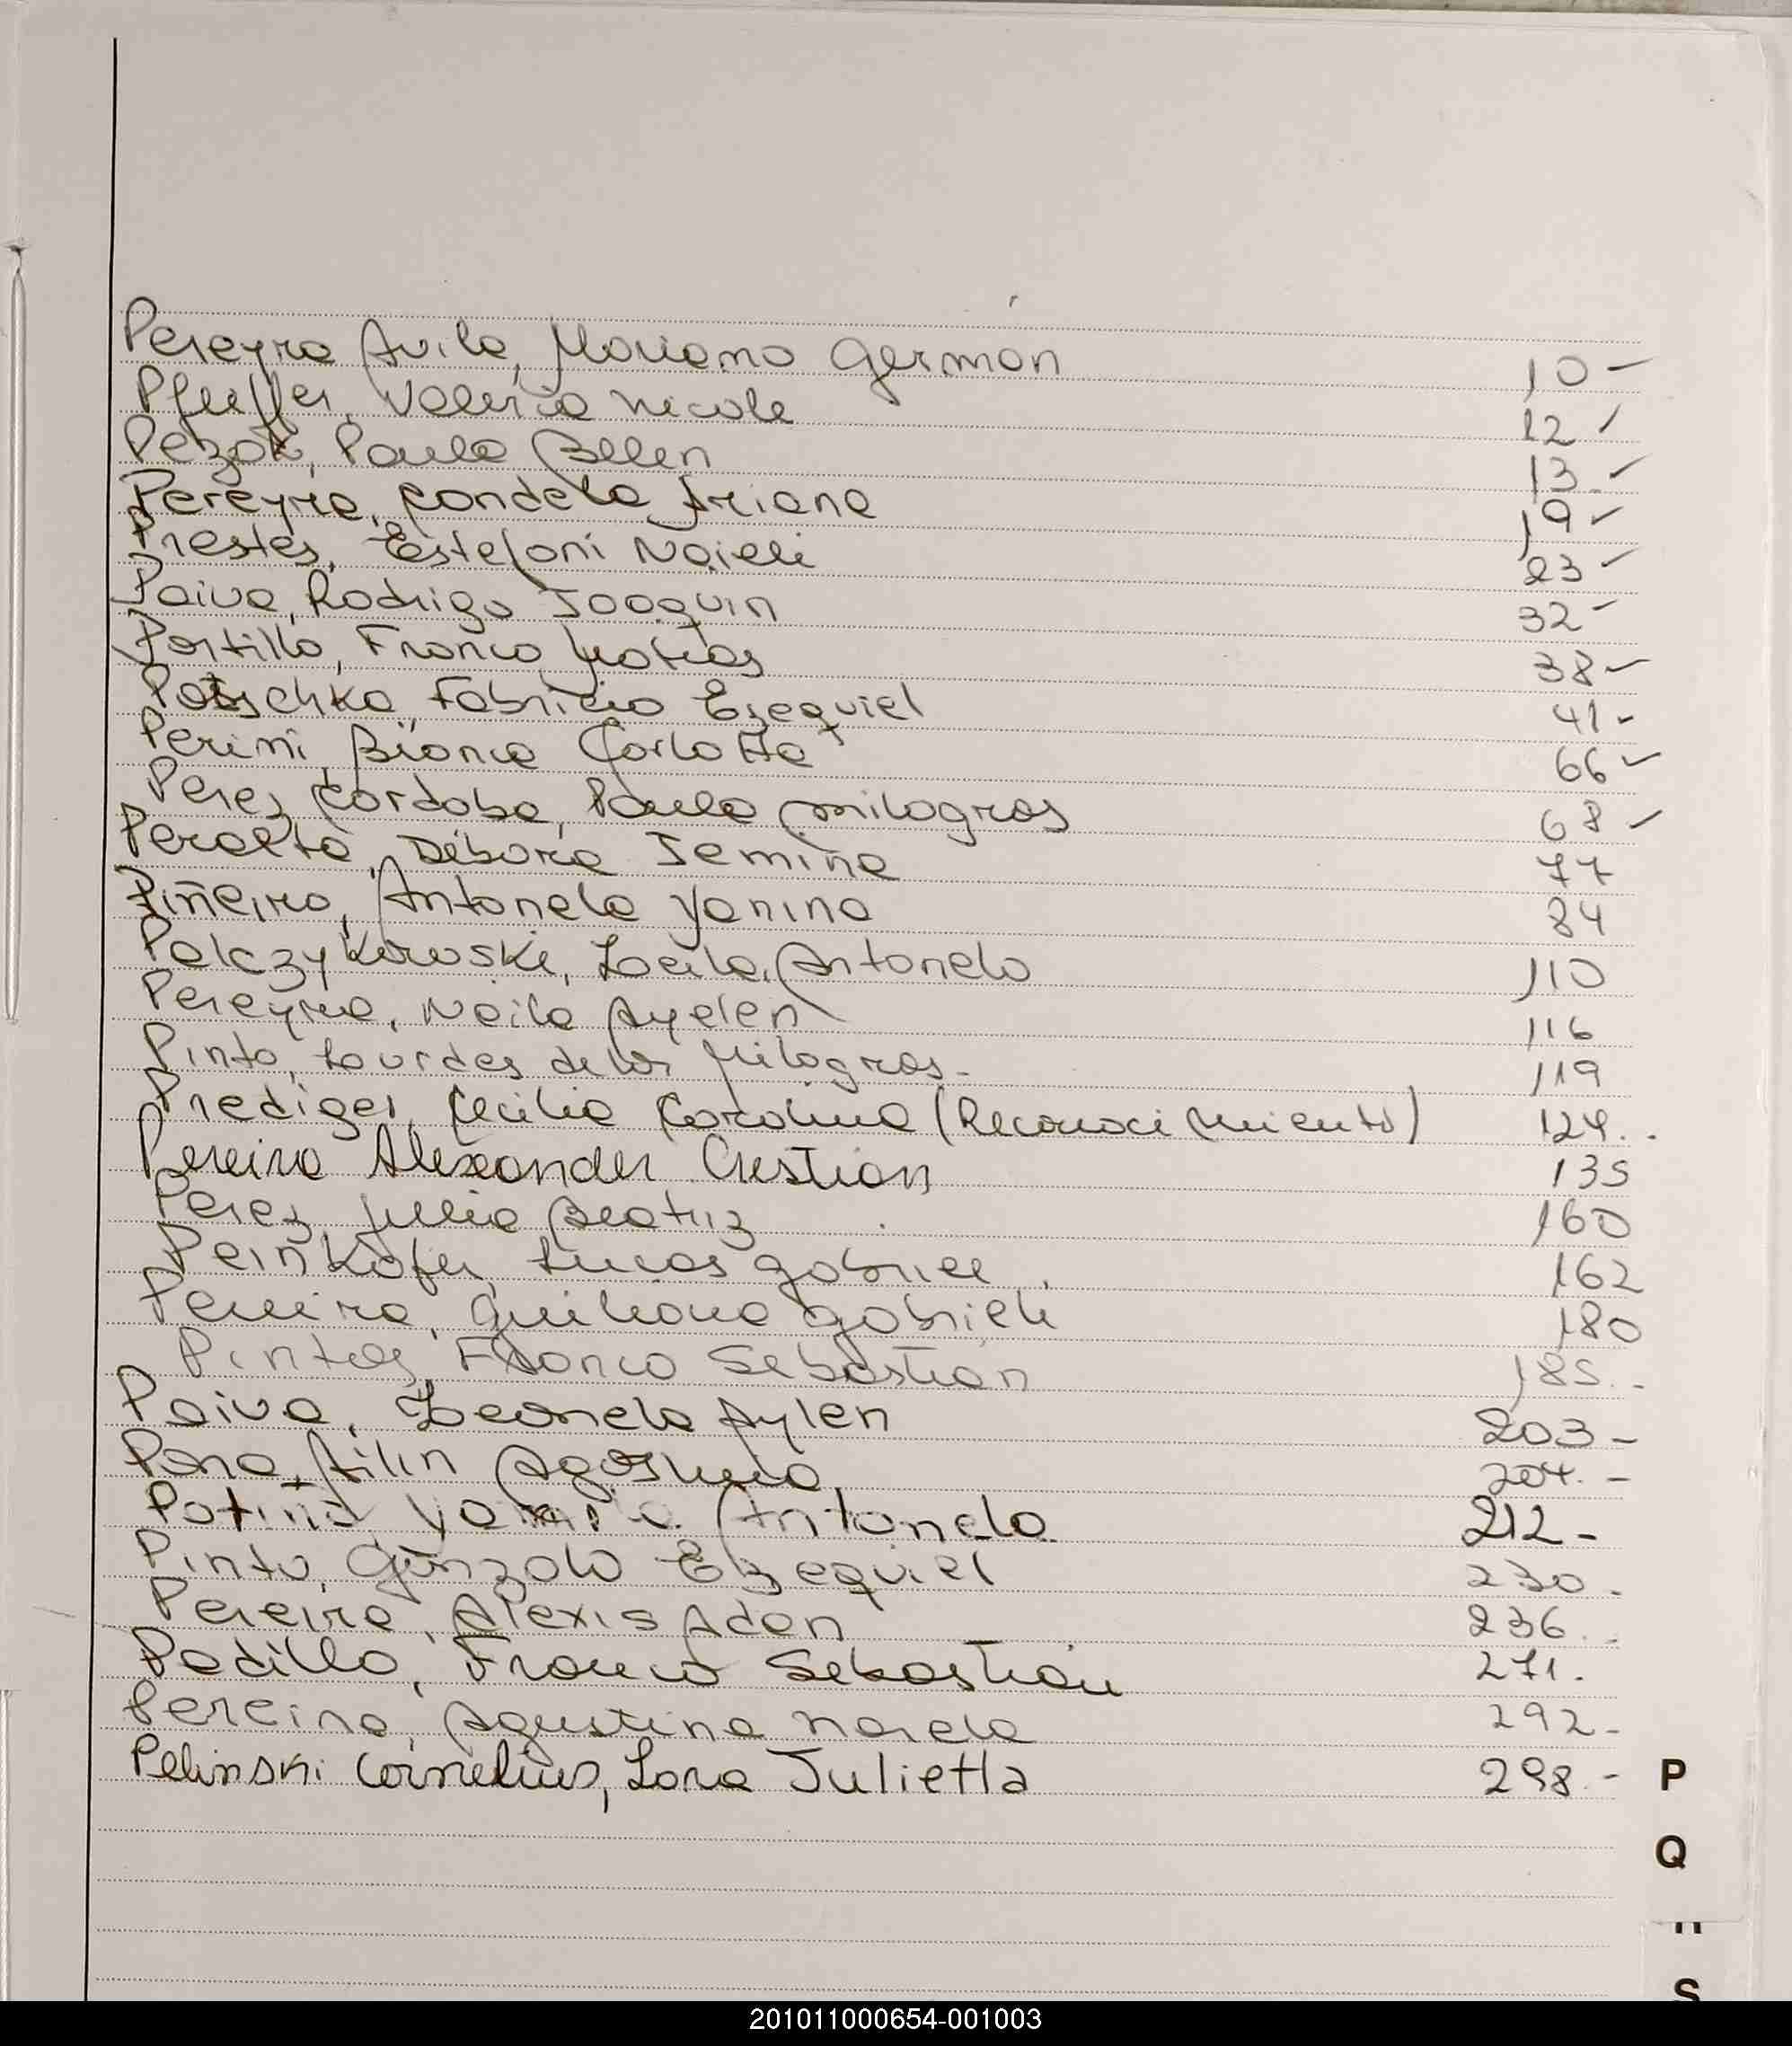 Pereyra Avila, Mariano Germán 10 -
Pfeiffer, Valeria Nicole 12 -
Pezok, Paula Belen 13 -
Pereyra, Candela Ariana 19 -
Prestes, Estefani Naieli 23 -
Paiva, Rodrigo Joaquin 32 -
Portillo, Franco Matias 38 -
Patschko, Fabricio Ezequiel 41 -
Perini, Bianca Carlotta 66 -
Perez Cordoba, Paula Milagros 68 -
Peralta, Débora Jemina 77
Piñeiro, Antonela Yanina 84
Palczykowski, Leila Antonela 110
Pereyra, Naila Ayelen 116
Pinto, Lourdes de los Milagros - 119
Prediger, Cecilia Carolina (Reconocimiento) 124. .
Pereira Alexander Cristian 135
Perez Julia Beatriz 160
Peinkofer, Lucas Gabriel 162
Pereira, Guiliana Gabriela 180
Pintos, Franco Sebastián 185. -
Paiva, Leonela Aylen 203 -
Pana, Ailin Agostina 204. -
Patiño Antonela 212 -
Pinto, Gonzalo Ezequiel 230 -
Pereira, Alexis Adan 236. -
Padilla, Franco Sebastián 271.
Pereira, Agustina Naiela 292 -
Pelinski Cornelius, Lara Julietta 298. -
P
Q
S
201011000654-001003